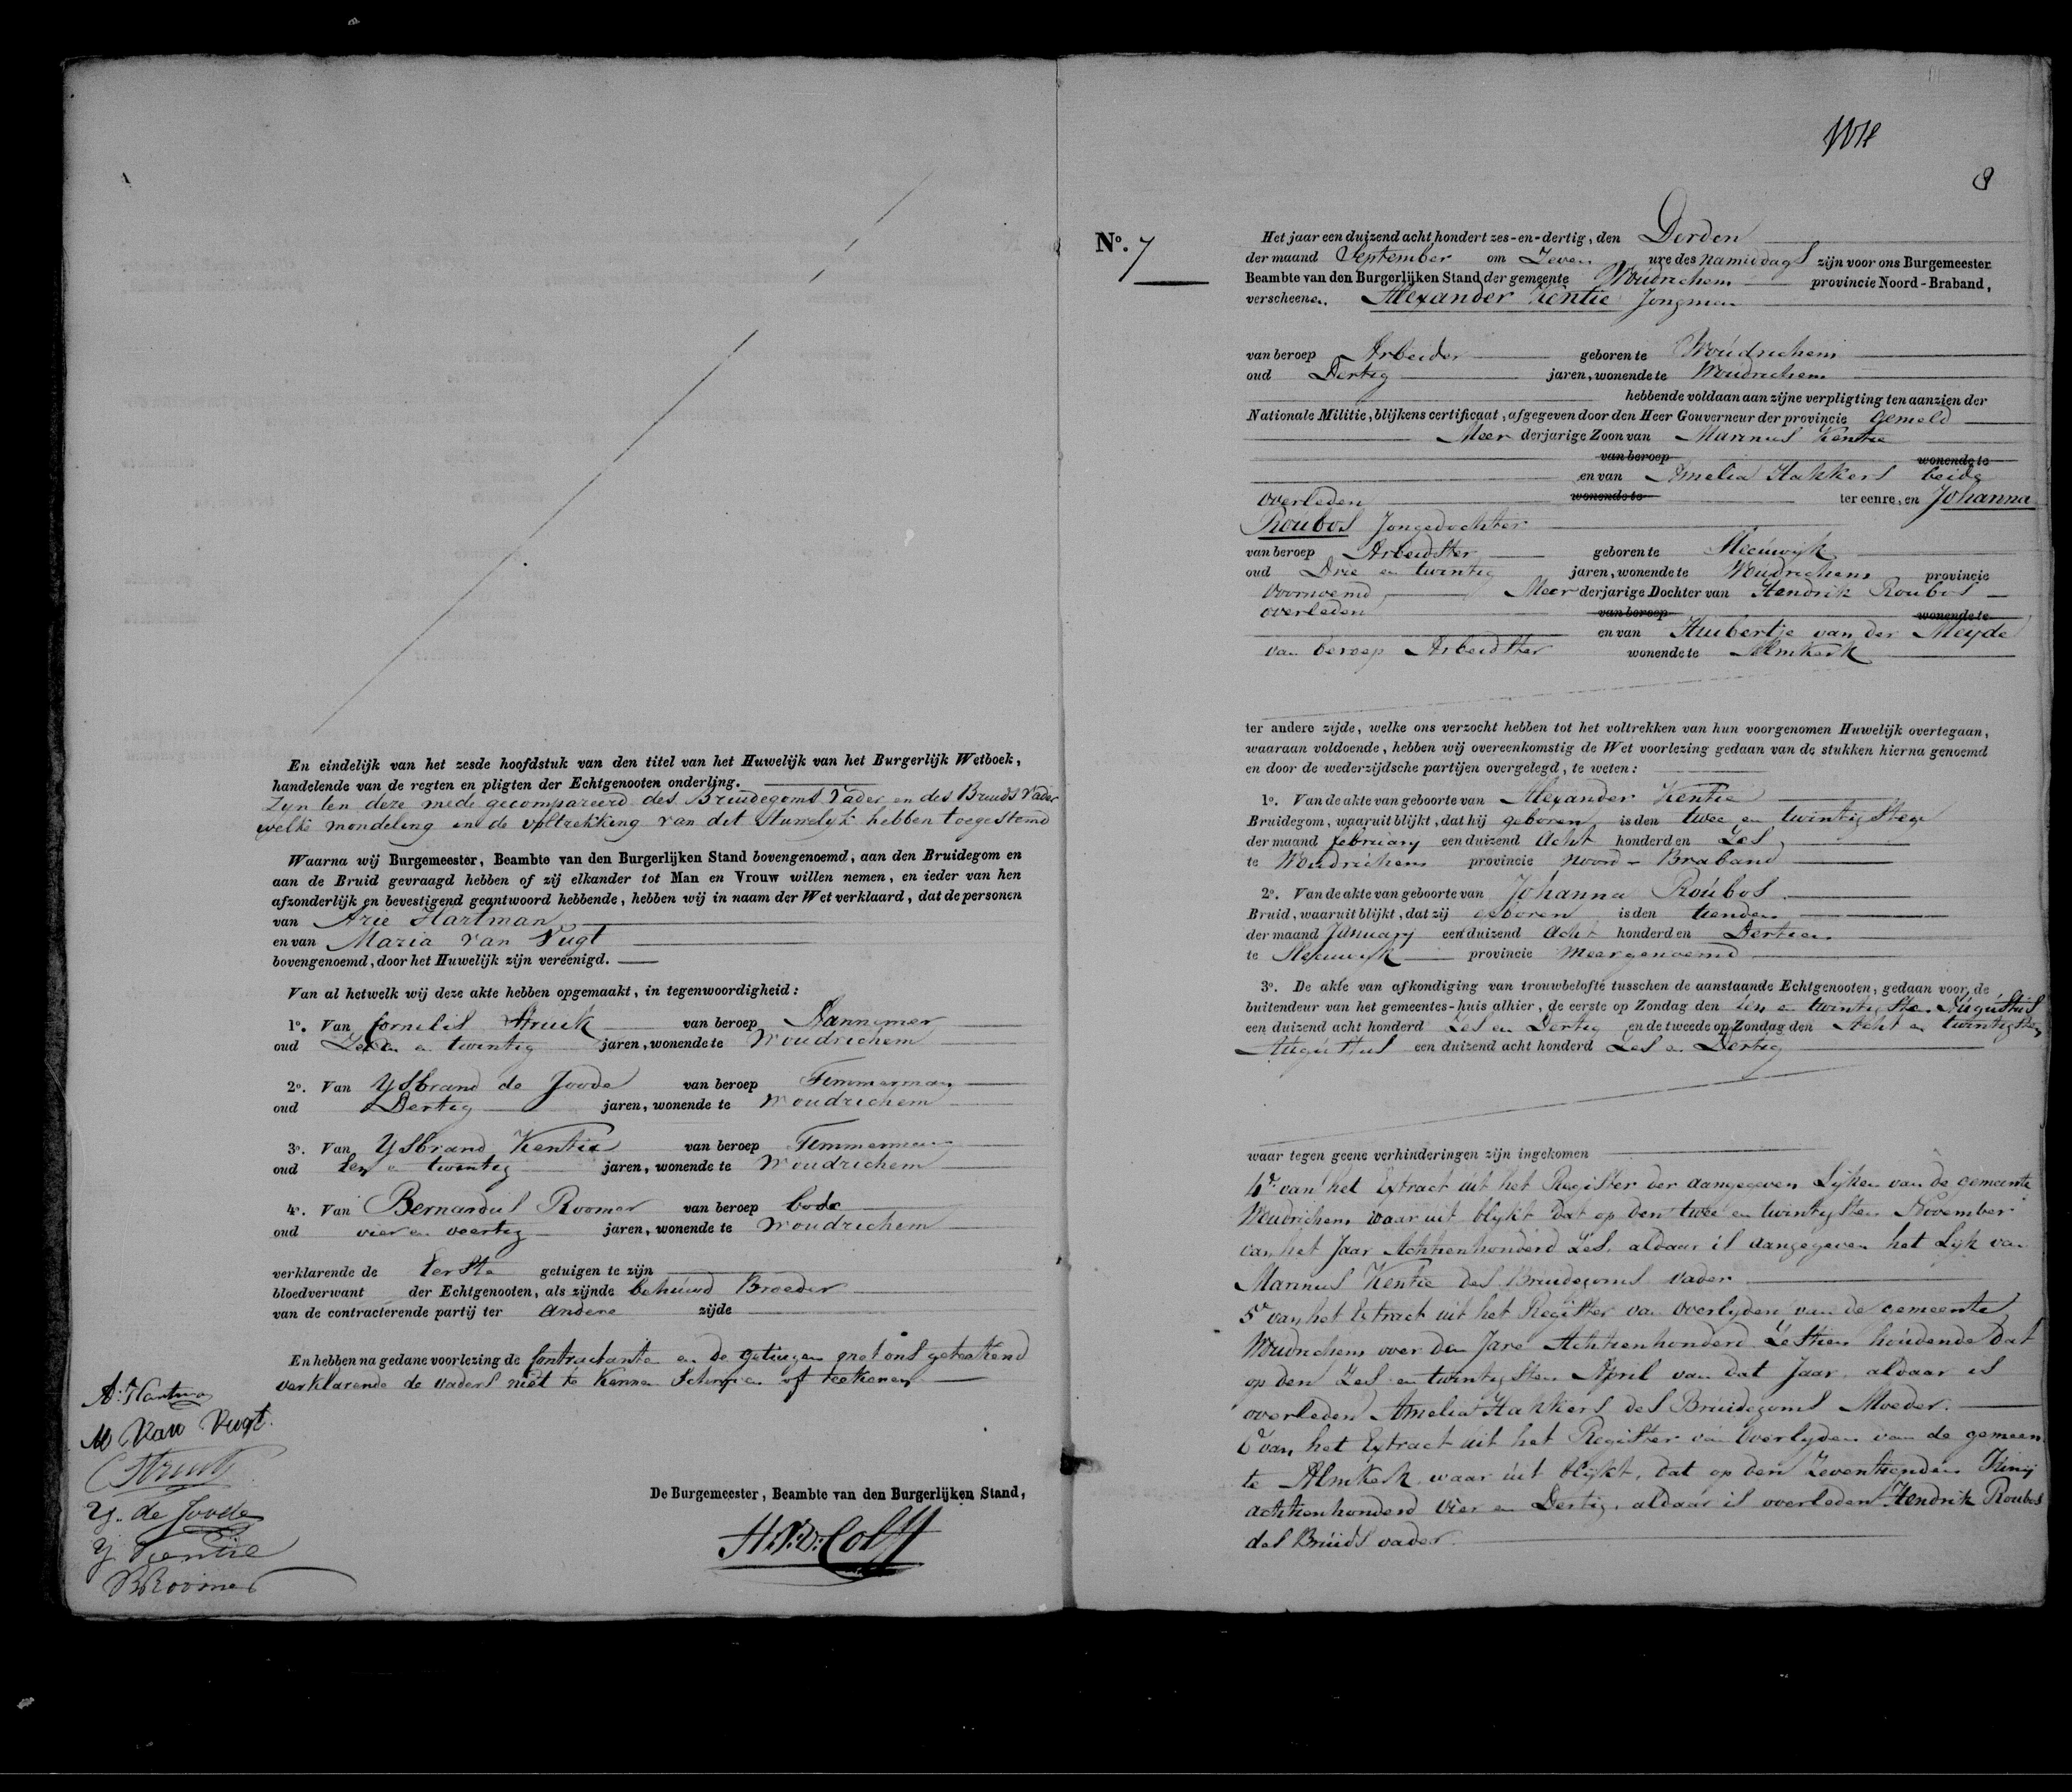 En eindelijk van het zesde hoofdstuk van den titel van het Huwelijk van het Burgerlijk Wetboek,
handelende van de regten en pligten der Echtgenooten onderling.
Zyn ten deze mede gecompareerd des Bruidegoms Vader en des Bruids Vader
welke mondeling in de voltrekking van dit Huwelyk hebben toegestemd
Waarna wij Burgemeester, Beambte van den Burgerlijken Stand bovengenoemd, aan den Bruidegom en
aan de Bruid gevraagd hebben of zij elkander tot Man en Vrouw willen nemen, en ieder van hen
afzonderlijk en bevestigend geantwoord hebbende, hebben wij in naam der Wet verklaard, dat de personen
van Arie Hartman
en van Maria van Vugt
bovengenoemd, door het Huwelijk zijn vereenigd.
Van al hetwelk wij deze akte hebben opgemaakt, in tegenwoordigheid:
1o. Van Cornelis Struik van beroep Aannemer
oud en twintig jaren, wonende te Woudrichem
2o. Van Ysbrand de Joode van beroep Timmerman
oud Dertig jaren, wonende te Woudrichem
3o. Van Ysbrand Kentie van beroep Timmerman
oud een en twintig jaren, wonende te Woudrichem
4o. Van Bernardus Roomer van beroep bode
oud vier en veertig jaren, wonende te Woudrichem
verklarende de eerste getuigen te zijn
bloedverwant der Echtgenooten, als zijnde behuwd Broeder
van de contracterende partij ter andere zijde
En hebben na gedane voorlezing de Contractanten en de getuigen met ons geteekend
verklarende de vaders niet te kennen Schryven of teekenen
A: Hartman
M Van Vugt.
C Struik
Y. de Joode
Y Kentie
B Roomer
De Burgemeester, Beambte van den Burgerlijken Stand,
Colff
8
No. 7
Het jaar een duizend acht hondert zes-en-dertig, den Derden
der maand September om Zeven ure des namiddags zijn voor ons Burgemeester
Beambte van den Burgerlijken Stand der gemeente Woudrichem provincie Noord-Braband,
verscheenen Alexander Kentie Jongman
van beroep Arbeider geboren te Woudrichem
oud Dertig jaren, wonende te Woudrichem
hebbende voldaan aan zijne verpligting ten aanzien der
Nationale Militie, blijkens certificaat, afgegeven door den Heer Gouverneur der provincie gemeld
Meer derjarige Zoon van Marinus Kentie
van beroep wonende te
en van Amelia Hakkers beide
overleden wonende te ter eenre, en Johanna
Roubos Jongedochter
van beroep Arbeidster geboren te Sleeuwijk
oud Drie en twintig jaren, wonende te Woudrichem provincie
voornoemd Meer derjarige Dochter van Hendrik Roubos
overleden van beroep wonende te
en van Huibertje van der Meyde
van beroep Arbeidster wonende te Almkerk
ter andere zijde, welke ons verzocht hebben tot het voltrekken van hun voorgenomen Huwelijk overtegaan,
waaraan voldoende, hebben wij overeenkomstig de Wet voorlezing gedaan van de stukken hierna genoemd
en door de wederzijdsche partijen overgelegd, te weten:
1o. Van de akte van geboorte van Alexander Kentie
Bruidegom, waaruit blijkt, dat hij geboren is den twee en twintigsten
der maand february een duizend Acht honderd en Zes
te Woudrichem provincie Noord-Braband
2o. Van de akte van geboorte van Johanna Roubos
Bruid, waaruit blijkt, dat zij geboren is den tienden
der maand January een duizend Acht honderd en Dertien
te Sleeuwijk provincie Meergenoemd
3o. De akte van afkondiging van trouwbelofte tusschen de aanstaande Echtgenooten, gedaan voor de
buitendeur van het gemeentes-huis alhier, de eerste op Zondag den een en twintigsten Augustus
een duizend acht honderd Zes en Dertig en de tweede op Zondag den Acht en twintigsten
Augustus een duizend acht honderd Zes en Dertig
waar tegen geene verhinderingen zijn ingekomen
4o van het Extract uit het Register der aangegeven Lyken van de gemeente
Woudrichem waar uit blykt dat op den twee en twintigsten November
van het Jaar Achtienhonderd Zes, aldaar is aangegeven het Lyk van
Marinus Kentie des Bruidegoms Vader
5o van het Extract uit het Register van Overlyden van de gemeente
Woudrichem over den Jare Achtienhonderd Zestien houdende dat
op den Zes en twintigsten April van dat Jaar aldaar is
overleden Amelia Hakkers des Bruidegoms Moeder.
6o van het Extract uit het Register van Overlyden van de gemeen
te Almkerk waar uit blykt, dat op den Zeventienden Juny
achttienhonderd Vier en Dertig, aldaar is overleden Hendrik Roubos
des Bruids vader